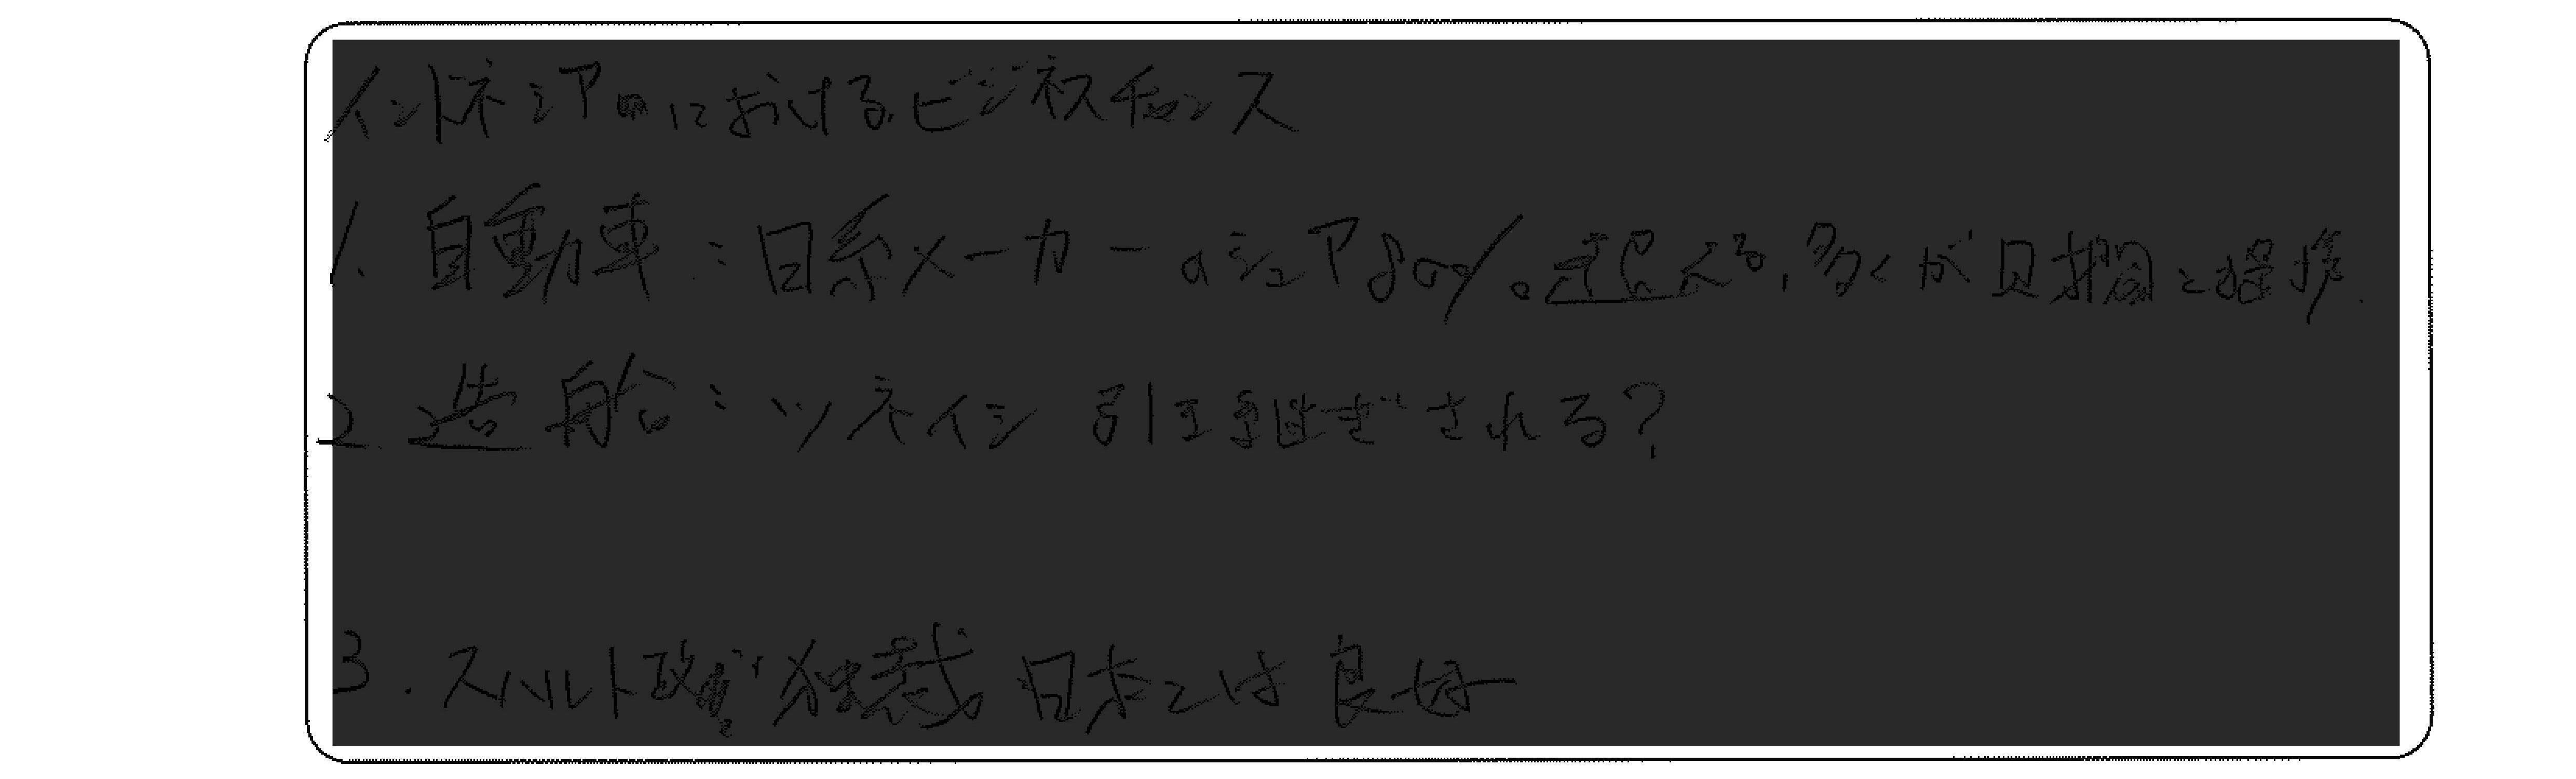 インドネシアにおけるビジネスチャンス
1. 自動車：日系メーカーのシェア80%超える，多くが財閥と提携．
2. 造船：ツネイシ 引き継ぎされる？
3. スハルト政 独裁 日本とは良好